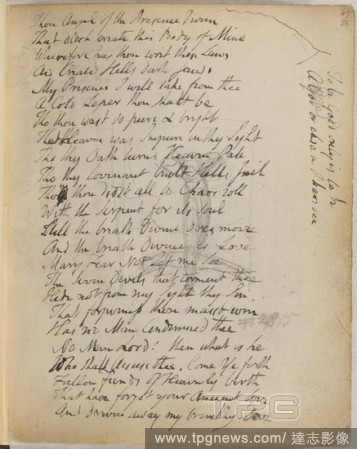 Thou Angel of the Presence Divine
That didst create this Body of Mine
Wherefore has thou writ these Laws
And Created Hells dark jaws
My Presence I will take from thee
A Cold Leper thou shalt be
Tho thou wast so pure & bright
That Heaven was Impure in thy Sight
Tho thy Oath turnd Heaven Pale
Tho thy Covenant built Hells Jail
Tho thou didst all to Chaos roll
With the Serpent for its soul
Still the breath Divine does move
And the breath Divine is Love
Mary Fear Not Let me see
The Seven Devils that torment thee
Hide not from my Sight thy Sin
That forgiveness thou maist win
Has no Man Condemned thee
No Man Lord! then what is he
Who shall Accuse thee. Come Ye forth
Fallen fiends of Heavnly birth
That have forgot your Ancient love
And driven away my trembling Dove
www.tpgnews.com／達志影像